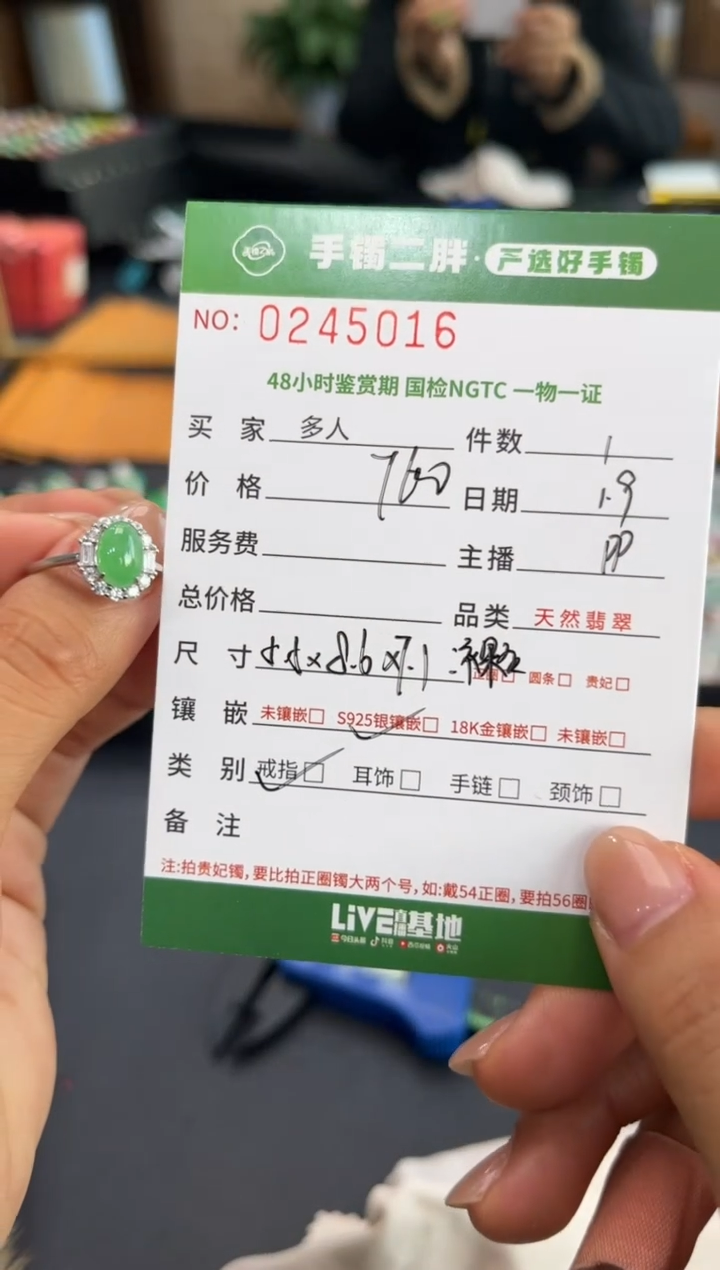 手镯二胖·严选好手镯
NO: 0245016
48小时鉴赏期 国检NGTC 一物一证
买 家 多人 件数 1
价 格 760 日期 1.9
服务费 主播 PP
总价格 品类 天然翡翠
尺 寸 5.5×8.6×7.1 裸石 圆条□ 贵妃□
镶 嵌 未镶嵌□ S925银镶嵌□ 18K金镶嵌□ 未镶嵌□
类 别 戒指□ 耳饰□ 手链□ 颈饰□
备 注
注:拍贵妃镯,要比拍正圈镯大两个号,如:戴54正圈,要拍56圈
LIVE直播基地
今日头条 抖音 西瓜视频 火山